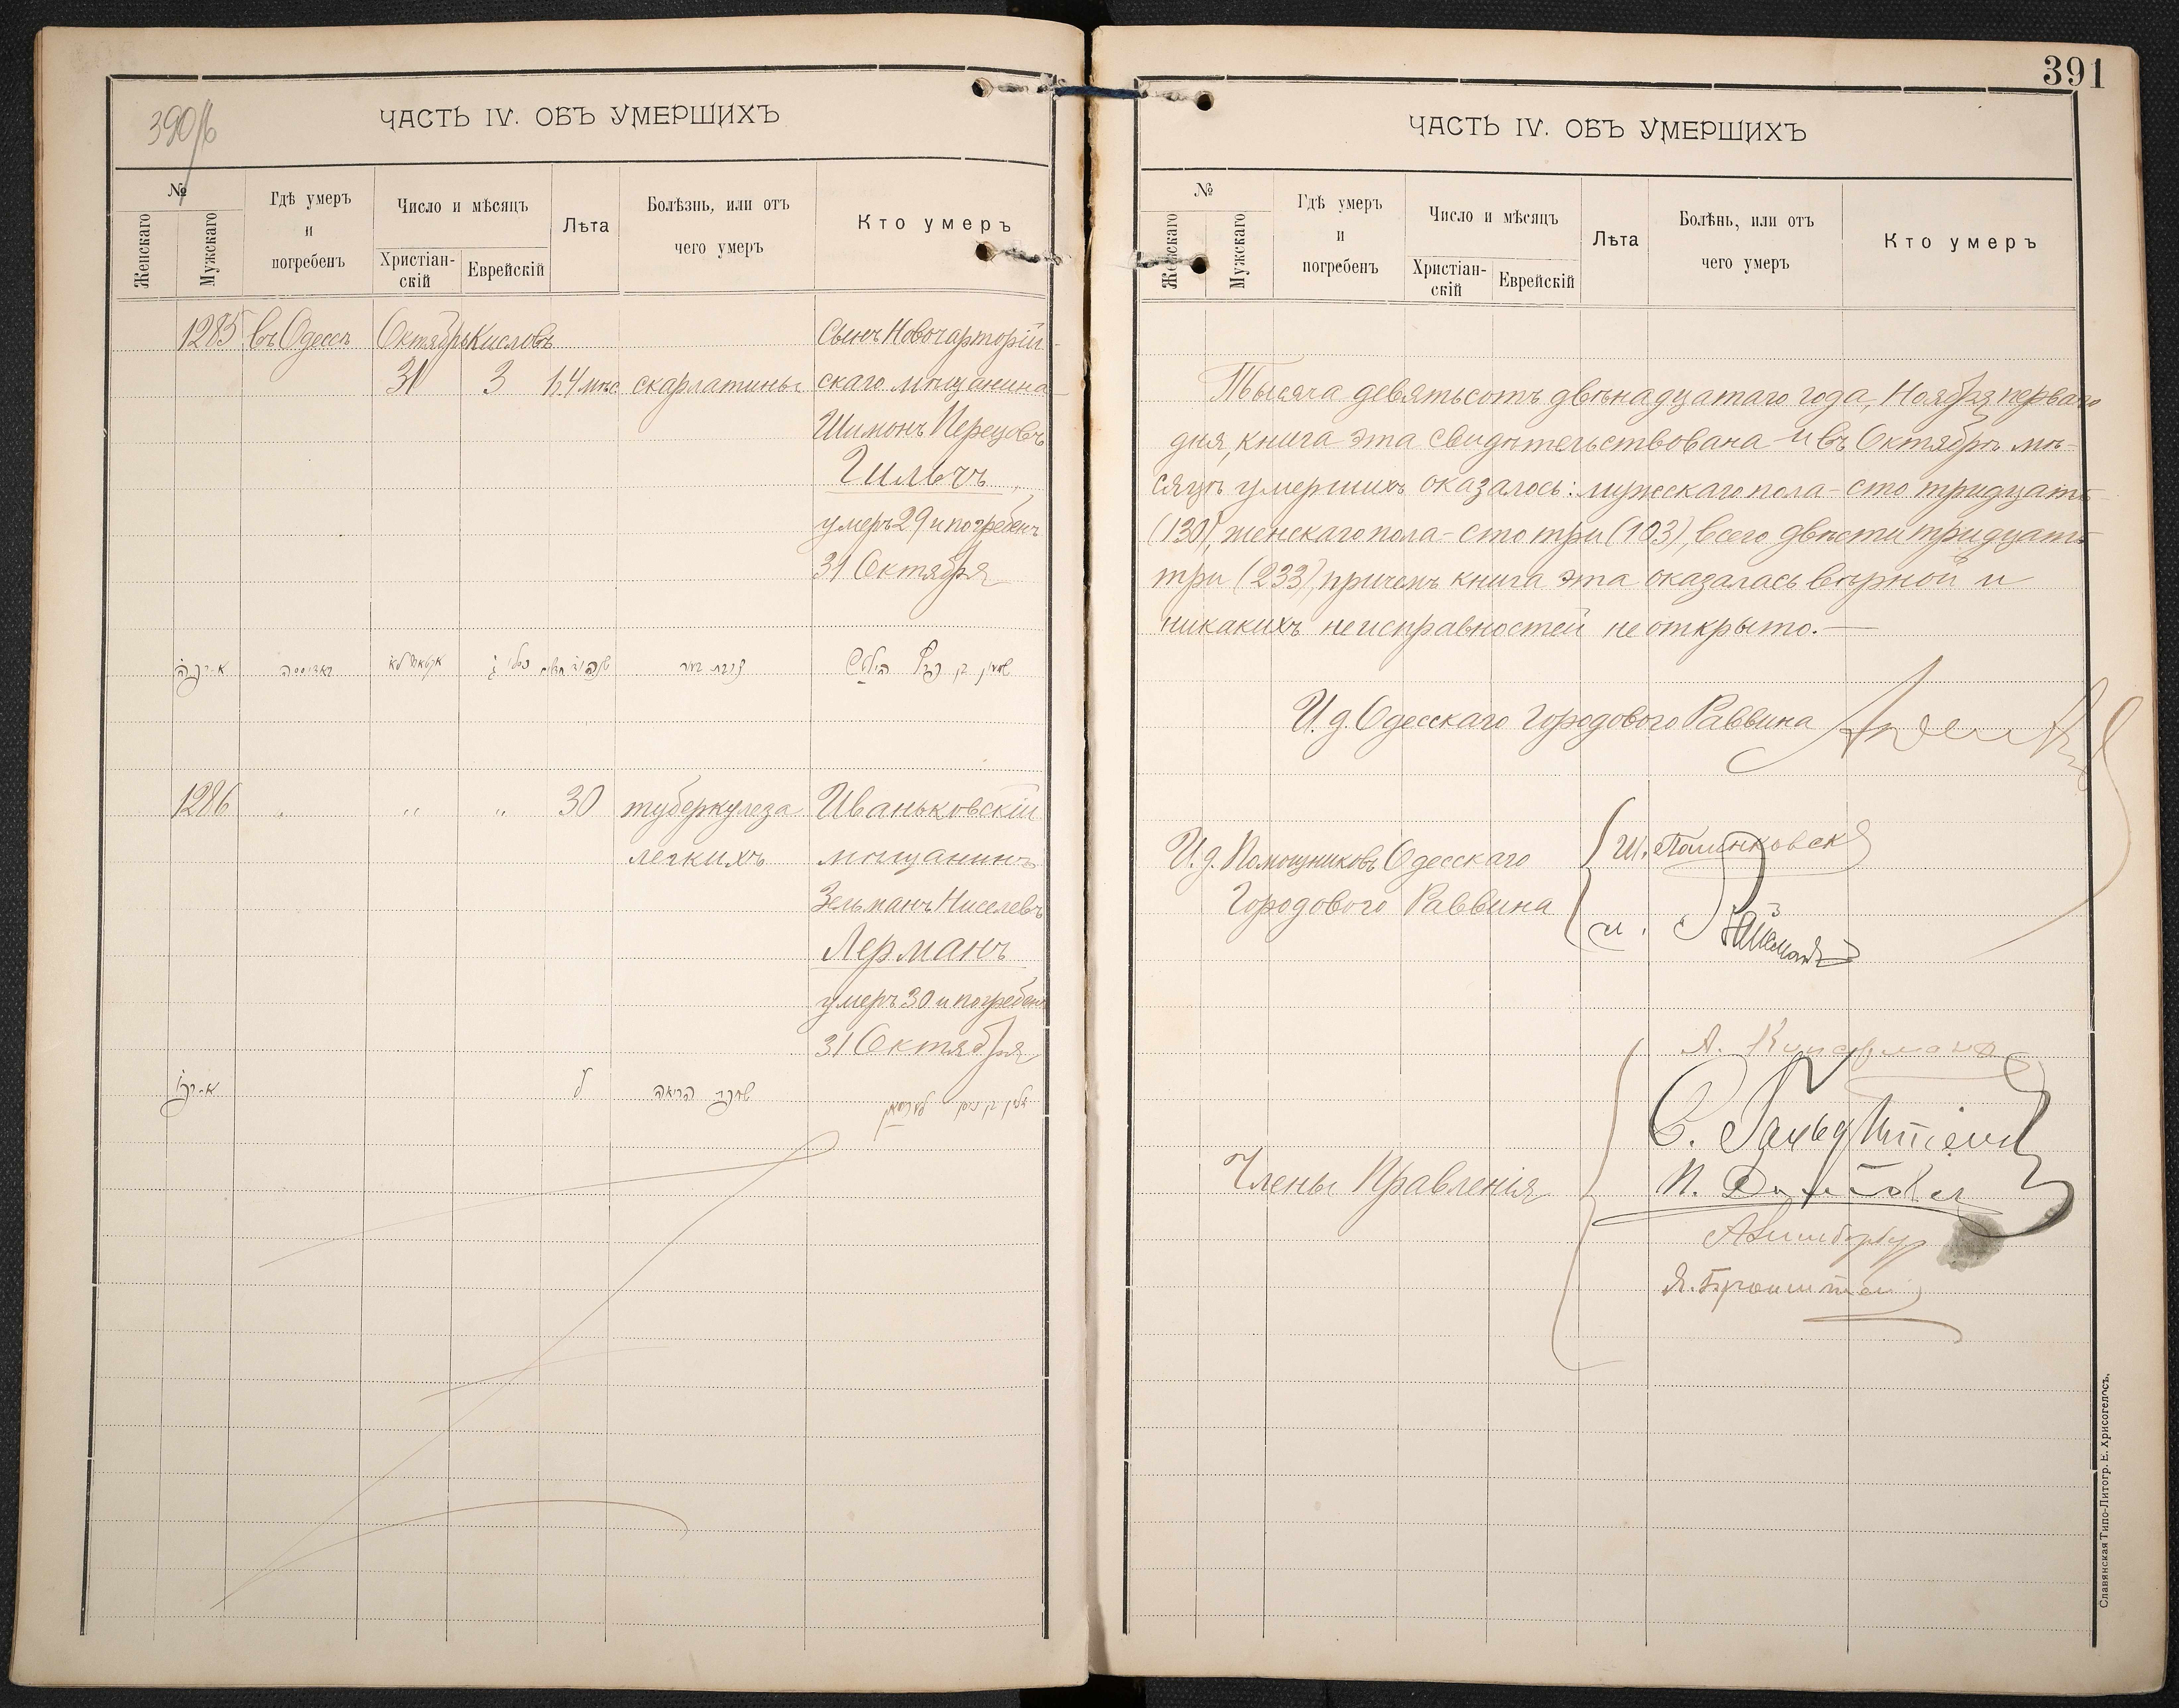 390/б
ЧАСТЬ IV. ОБЪ УМЕРШИХЪ
№
Женскаго
Мужскаго
Гдѣ умеръ
и
погребенъ
Число и мѣсяцъ
Христіан-
скій
Еврейскій
Лѣта
Болѣзнь, или отъ
чего умеръ
Кто умеръ
1285 въ Одессѣ Октябрь Кисловъ Сынъ Новочарторій-
31 3 1г.4мѣс. скарлатины скаго мѣщанина
Шимонъ Перецовъ
Гильчъ
умеръ 29 и погребенъ
31 Октября
באדיסא
שמעון בן פרץ הילטש
1286 " " " 30 туберкулеза Иваньковскій
легкихъ мѣщанинъ
Зельманъ Ниселевъ
Лерманъ
умеръ 30 и погребенъ
31 Октября
ל שחפת הריאה זלמן בן ניסן לערמאן
391
ЧАСТЬ IV. ОБЪ УМЕРШИХЪ
№
Женскаго
Мужскаго
Гдѣ умеръ
и
погребенъ
Число и мѣсяцъ
Христіан-
скій
Еврейскій
Лѣта
Болѣнь, или отъ
чего умеръ
Кто умеръ
Тысяча девятьсотъ двѣнадцатаго года, Ноября перваго
дня, книга эта свидѣтельствована и въ Октябрѣ мѣ-
сяцѣ умершихъ оказалось: мужскаго пола - сто тридцать
(130), женскаго пола - сто три (103), всего двѣсти тридцать
три (233), причемъ книга эта оказалась вѣрной и
никакихъ неисправностей не открыто.—
И. д. Одесскаго Городового Раввина
И. д. Помощниковъ Одесскаго
Городового Раввина
Ш.
Члены Правленія
А.
С. Гольдштейнъ
П.
Я. Бронштейнъ
Славянская Типо-Литогр. Е. Хрисогелосъ.